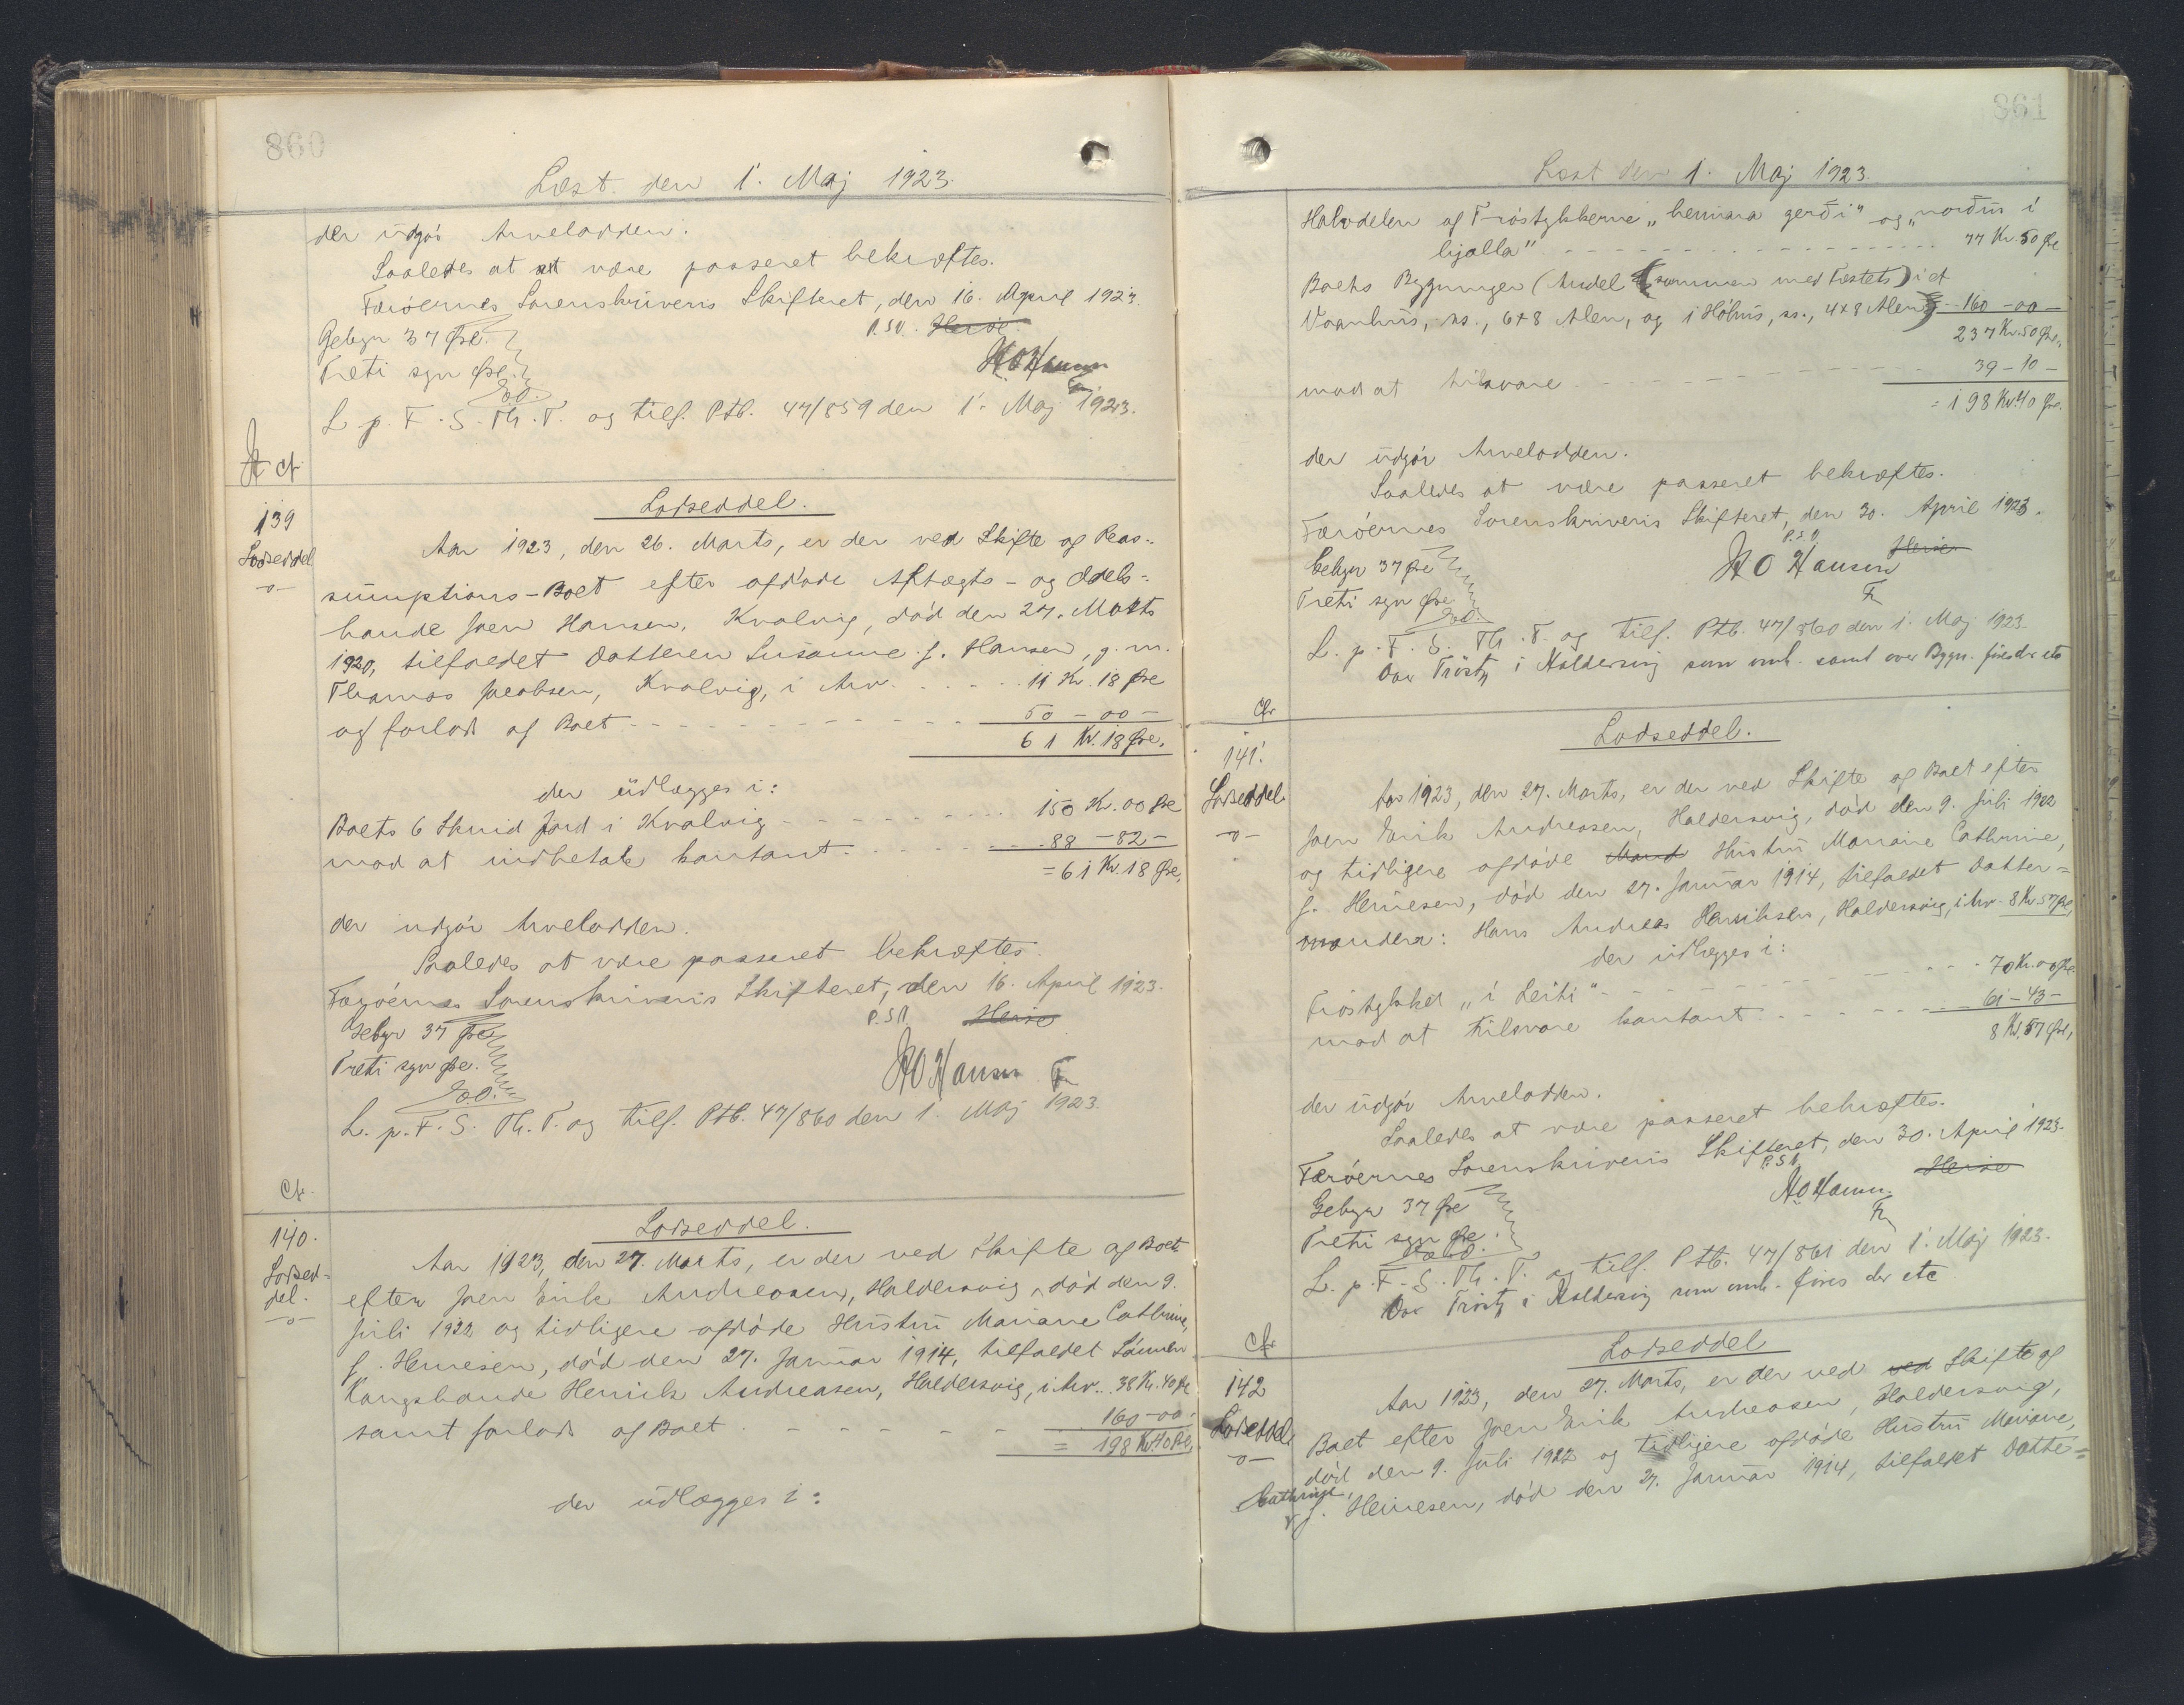 860
Læst den 1. Maj 1923.
der udgør Arvelodden.
Saaledes at være passeret bekræftes.
Færøernes Sorenskriveris Skifteret, den 16. April 1923.
P.S.V. Heise
Gebyr 37 Øre.
Treti syv Øre.
H O Hansen
Fm
E.O.
L. p. F. S. Th. T. og tilf. Ptb. 47/859 den 1. Maj 1923.
Cfr.
Lodseddel.
139
Lodseddel
-o-
Aar 1923, den 26. Marts, er der ved Skifte af Reas-
sumptions-Boet efter afdøde Aftægts- og Odels-
bonde Joen Hansen, Kvalvig, død den 27. Marts
1920, tilfaldet Datteren Susanne f. Hansen, g. m.
Thomas Jacobsen, Kvalvig, i Arv . . . . . 11 Kr. 18 Øre
og forlods af Boet - - - - - - - - - - - - 50 - 00 -
61 Kr. 18 Øre.
der udlægges i:
Boets 6 Skind Jord i Kvalvig - - - - - - - - 150 Kr. 00 Øre
mod at indbetale kontant . . - - - - - - 88 - 82 -
= 61 Kr. 18 Øre.
der udgør Arvelodden.
Saaledes at være passeret bekræftes.
Færøernes Sorenskriveris Skifteret, den 16. April 1923.
P.S.V. Heise
Gebyr 37 Øre
Treti syv Øre.
H O Hansen Fm
E.O.
L. p. F. S. Th. T. og tilf. Ptb. 47/860 den 1. Maj 1923.
Cfr.
Lodseddel.
140.
Lodsed-
del.
-o-
Aar 1923, den 27. Marts, er der ved Skifte af Boet
efter Joen Eirik Andreasen, Haldersvig, død den 9.
Juli 1922 og tidligere afdøde Hustru Mariane Cathrine,
f. Heinesen, død den 27. Januar 1914, tilfaldet Sønnen
Kongsbonde Henrik Andreasen, Haldersvig, i Arv .. 38 Kr. 40 Øre
samt forlods af Boet . - - - - - - - 160 - 00 -
= 198 Kr. 40 Øre
der udlægges i:
861
Læst den 1. Maj 1923.
Halvdelen af Trøstykkerne "heimara gerði" og "norðuri i
hjalla" - - - - - - - - - - - - - - - - 77 Kr. 50 Øre
Boets Bygninger (Andel sammen med Fæstets) i et
Vaanhus, ss., 6x8 Alen, og i Høhus, ss., 4x8 Alen - 160 - 00 -
237 Kr. 50 Øre.
mod at tilsvare . - - - - - - - - - - - 39 - 10 -
= 198 Kr. 40 Øre.
der udgør Arvelodden.
Saaledes at være passeret bekræftes.
Færøernes Sorenskriveris Skifteret, den 30. April 1923.
P.S.V. Heise
Gebyr 37 Øre
H O Hansen
Fm
Treti syv Øre.
E.O.
L. p. F. S. Th. T. og tilf. Ptb. 47/860 den 1. Maj 1923.
Cfr.
Lodseddel.
141.
Lodseddel
-o-
Aar 1923, den 27. Marts, er der ved Skifte af Boet efter
Joen Eirik Andreasen, Haldersvig, død den 9. Juli 1922
og tidligere afdøde Mand Hustru Mariane Cathrine,
f. Heinesen, død den 27. Januar 1914, tilfaldet Datter-
manden: Hans Andreas Henriksen, Haldersvig, i Arv - 8 Kr. 57 Øre,
der udlægges i:
Trøstykket "i Leiti" - - - - - - - - - 70 Kr. 00 Øre
mod at tilsvare kontant . - - - - - - - 61 - 43 -
8 Kr. 57 Øre,
der udgør Arvelodden.
Saaledes at være passeret bekræftes.
Færøernes Sorenskriveris Skifteret, den 30. April 1923.
P.S.V. Heise
Gebyr 37 Øre
H O Hansen
Fm
Treti syv Øre.
E.O.
L. p. F. S. Th. T. og tilf. Ptb. 47/861 den 1. Maj 1923.
Cfr.
Lodseddel
142
Lodseddel
-o-
Aar 1923, den 27. Marts, er der ved ved Skifte af
Boet efter Joen Eirik Andreasen, Haldersvig,
død den 9. Juli 1922 og tidligere afdøde Hustru Mariane,
Cathrine,
f. Heinesen, død den 27. Januar 1914, tilfaldet Datte-